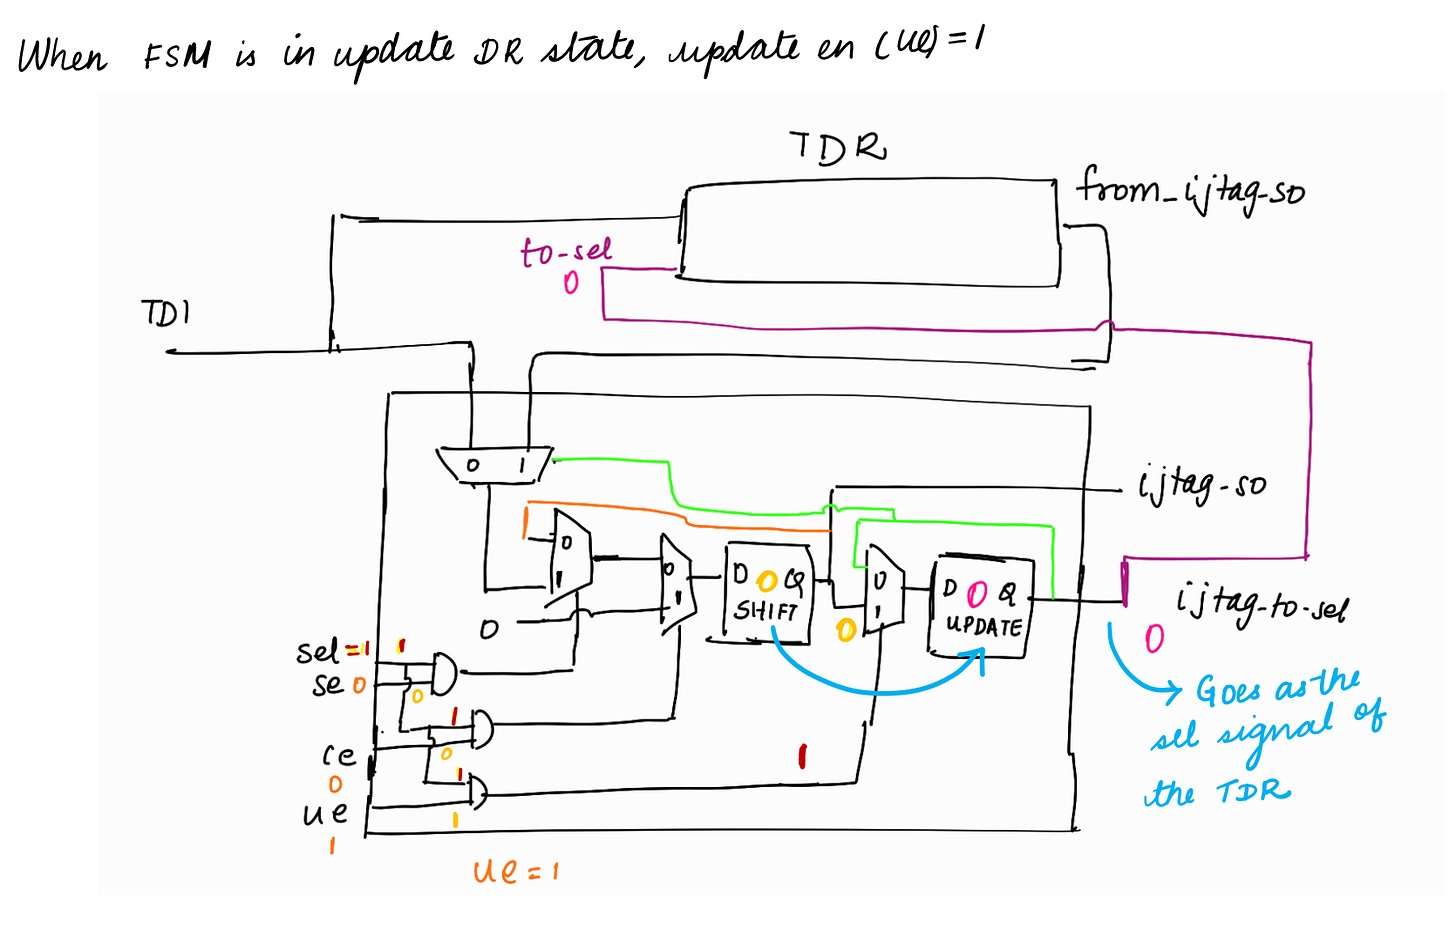 When FSM is in update DR state, update en (ue) = 1
TDR
from_ijtag-so
to-sel
0
TDI
0 1
ijtag-so
0
1
0
1
D 0 Q
SHIFT
0
1
D 0 Q
UPDATE
0
0
ijtag-to-sel
0
sel=1 1
se 0
0
1
ce
0
0
1
ue
1
1
1
ue = 1
Goes as the
sel signal of
the TDR